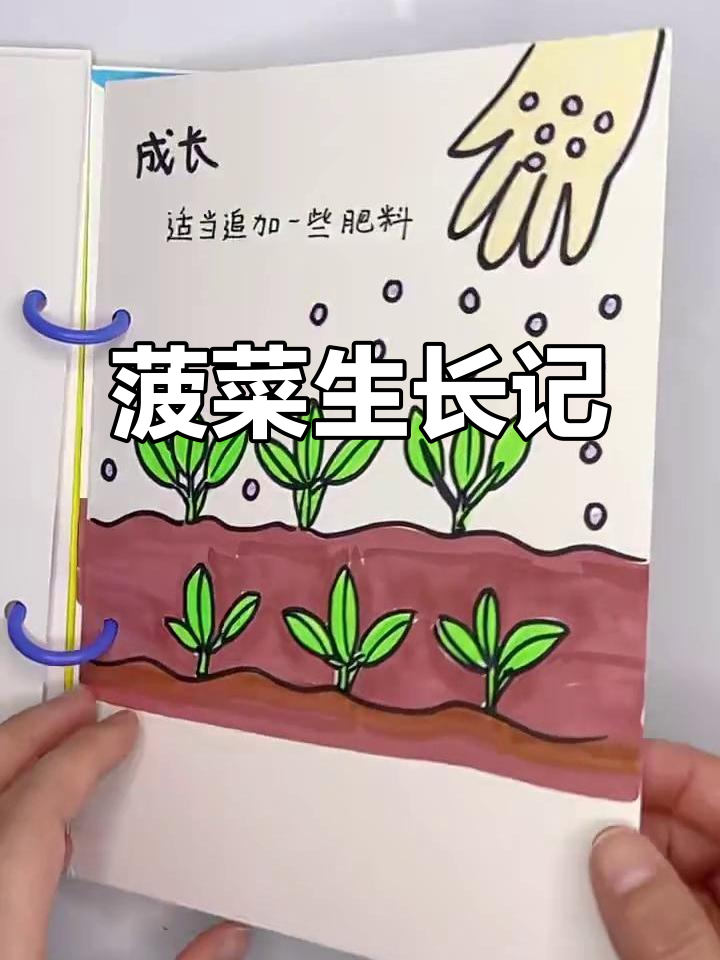 成长
适当追加一些肥料
菠菜生长记